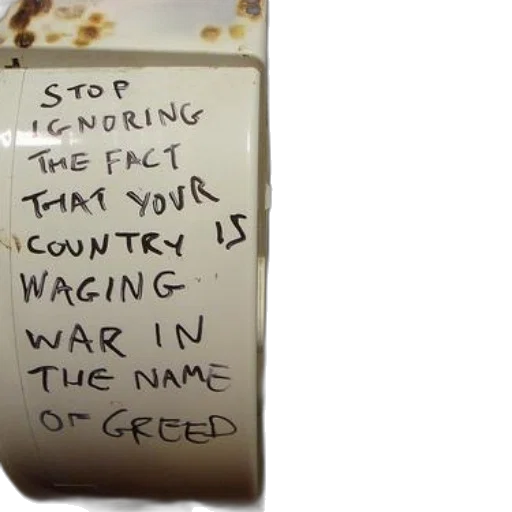 STOP
IGNORING
THE FACT
THAT YOUR
COUNTRY IS
WAGING
WAR IN
THE NAME
OF GREED